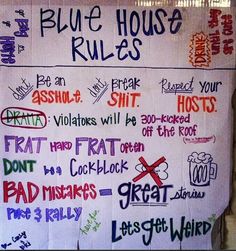 BLUE HOUSE
RULES
DRINK
don't Be an
ASSHOLE.
don't Break
SHIT.
Respect Your
HOSTS.
DRAMA: Violators will be 300-kicked
off the Roof
FRAT HARD FRAT often
DONT be a Cockblock
BAD MISTAKES = GREAT stories
PUKE & RALLY
Lets get Weird